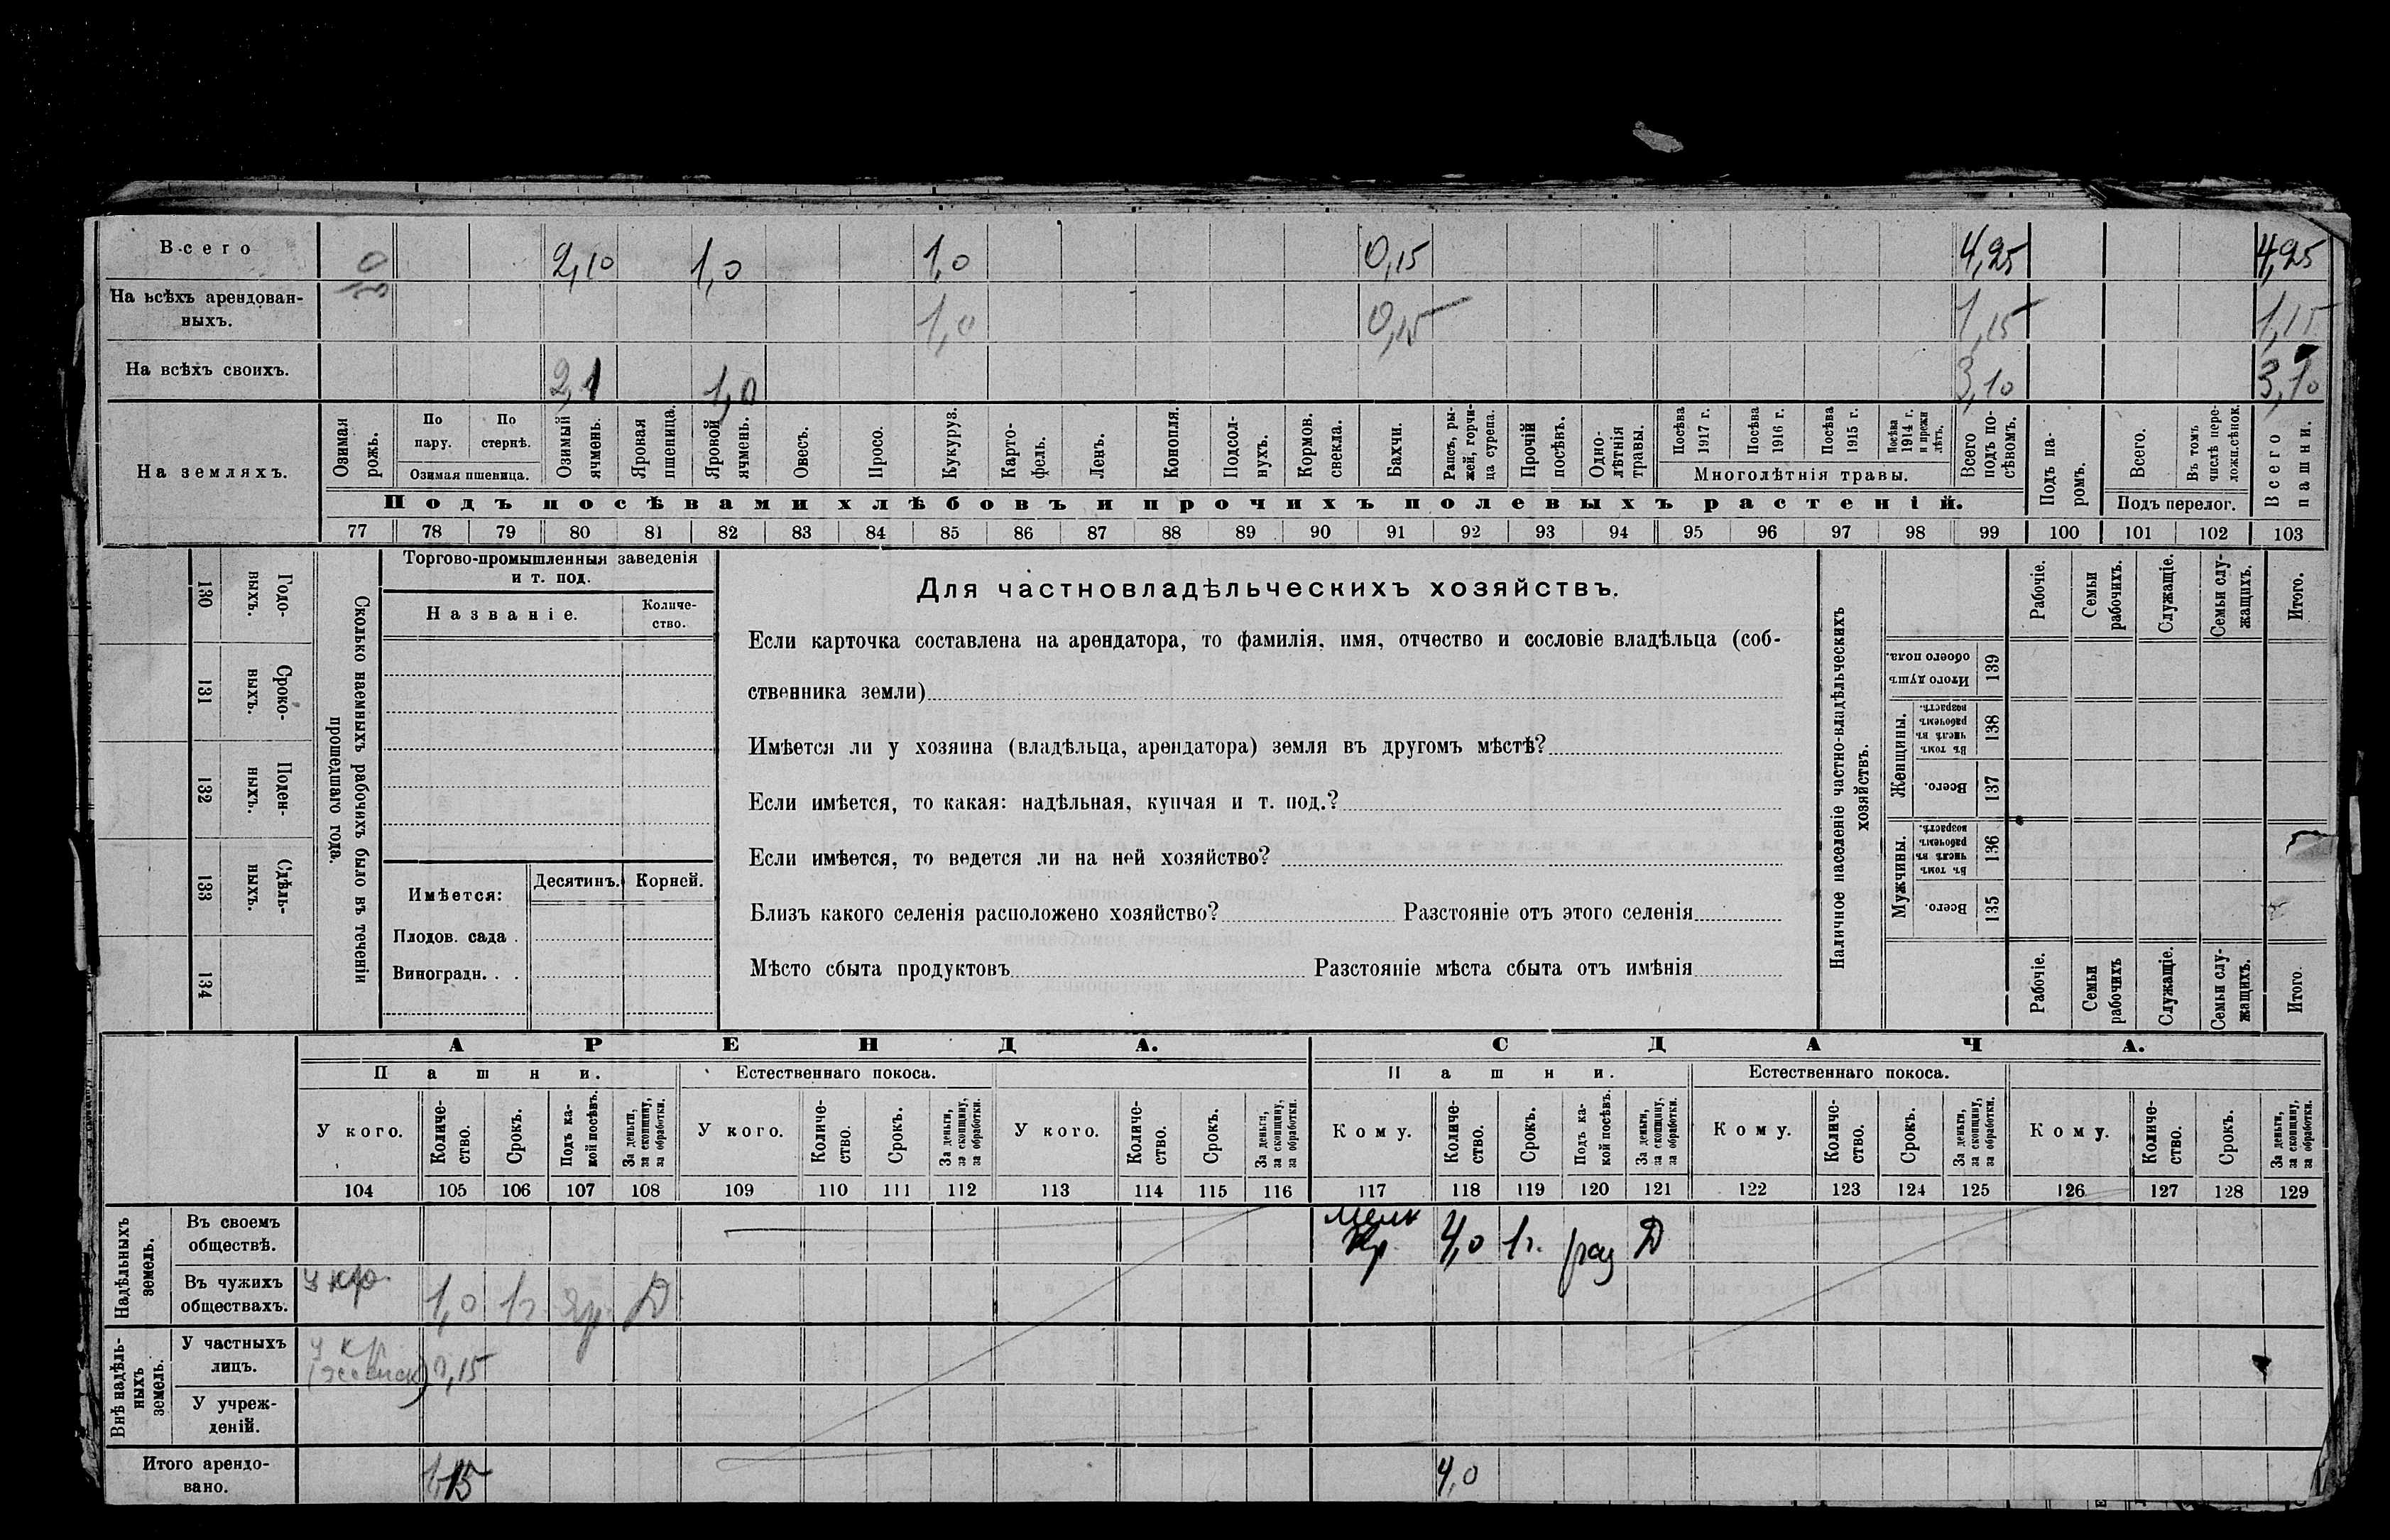 Всего 2,10 1,0 1,0 0,15 4,25 4,25
На всѣхъ арендован-
ныхъ. 1,0 0,15 1,15 1,15
На всѣхъ своихъ. 2,1 1,0 3,10 3,10
На земляхъ.
Озимая рожь.
По пару.
По стернѣ.
Озимая пшеница.
Озимый ячмень.
Яровая пшеница.
Яровой ячмень.
Овесъ.
Просо.
Кукуруз.
Карто-
фель.
Ленъ.
Конопля.
Подсол-
нухъ.
Кормов. свекла.
Бахчи.
Рапсъ, ры-
жей, горчи-
ца сурепа.
Прочій посѣвъ.
Одно-
лѣтнія травы.
Посѣва 1917 г.
Посѣва 1916 г.
Посѣва 1915 г.
Посѣва 1914 г. и прежн лѣтъ.
Многолѣтнія травы.
Всего подъ по-
сѣвомъ.
Подъ па-
ромъ.
Всего.
Въ томъ числѣ пере-
ложн.сѣнок.
Подъ перелог.
Всего пашни.
Подъ посѣвами хлѣбовъ и прочихъ полевыхъ растеній.
77 78 79 80 81 82 83 84 85 86 87 88 89 90 91 92 93 94 95 96 97 98 99 100 101 102 103
130 Годо-
выхъ.
131 Сроко-
ныхъ.
132 Поден-
ныхъ.
133 Сдѣль-
ныхъ.
134
Сколько наемныхъ рабочихъ было въ теченіи
прошедшаго года.
Торгово-промышленныя заведенія
и т. под.
Названіе.
Количе-
ство.
Имѣется: Десятинъ. Корней.
Плодов. сада .
Виноградн. . .
Для частновладѣльческихъ хозяйствъ.
Если карточка составлена на арендатора, то фамилія, имя, отчество и сословіе владѣльца (соб-
ственника земли)
Имѣется ли у хозяина (владѣльца, арендатора) земля въ другомъ мѣстѣ?
Если имѣется, то какая: надѣльная, купчая и т. под.?
Если имѣется, то ведется ли на ней хозяйство?
Близъ какого селенія расположено хозяйство? Разстояніе отъ этого селенія
Мѣсто сбыта продуктовъ Разстояніе мѣста сбыта отъ имѣнія
Наличное населеніе частно-владѣльческихъ
хозяйствъ.
Рабочіе.
Семьи рабочихъ.
Служащіе.
Семьи слу-
жащихъ.
Итого.
Итого душъ обоего пола. 139
Женщины.
Въ томъ числѣ въ рабочемъ возрастѣ. 138
Всего. 137
Мужчины.
Въ томъ числѣ въ рабочемъ возрастѣ. 136
Всего. 135
Рабочіе.
Семьи рабочихъ
Служащіе.
Семьи слу-
жащихъ.
Итого.
АРЕНДА. СДАЧА.
Пашни. Естественнаго покоса. Пашни. Естественнаго покоса.
У кого.
Количе-
ство.
Срокъ.
Подъ ка-
кой посѣвъ.
За деньги,
за скопщину,
за обработки.
У кого.
Количе-
ство.
Срокъ.
За деньги,
за скопщину,
за обработки.
У кого.
Количе-
ство.
Срокъ.
За деньги,
за скопщину,
за обработки.
Кому.
Количе-
ство.
Срокъ.
Подъ ка-
кой посѣвъ.
За деньги,
за скопщину,
за обработки.
Кому.
Количе-
ство.
Срокъ.
За деньги,
за скопщину,
за обработки.
Кому.
Количе-
ство.
Срокъ.
За деньги,
за скопщину,
за обработки.
104 105 106 107 108 109 110 111 112 113 114 115 116 117 118 119 120 121 122 123 124 125 126 127 128 129
Надѣльныхъ земель.
Въ своемъ
обществѣ. Кр. 4,0 1г. раз Д
Въ чужихъ
обществахъ. у кр. 1,0 1г. яр. Д
Внѣ надѣль-
ныхъ земель.
У частныхъ
лицъ. у кр 0,15
У учреж-
деній.
Итого арендо-
вано. 1,15 4,0